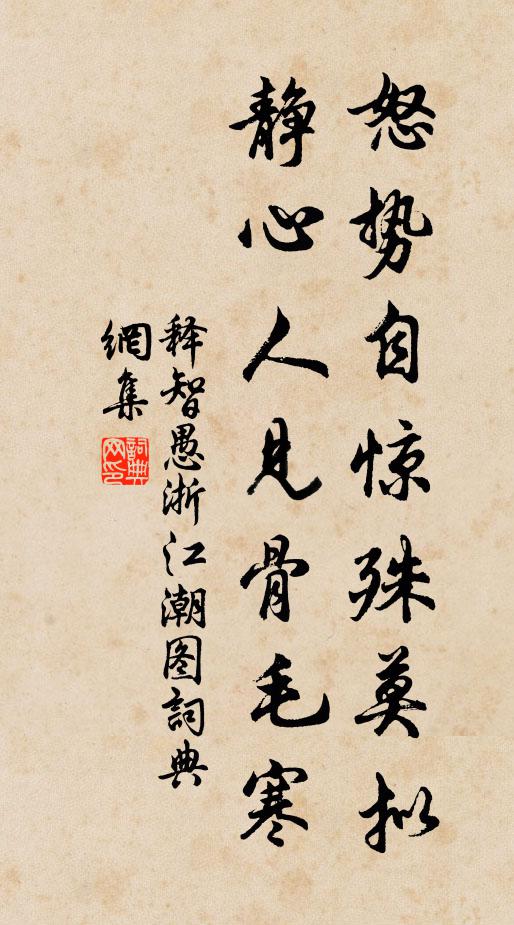 怒势自惊殊莫拟
静心人见骨毛寒
释智愚浙江潮图詞典
網集
詞典
网印